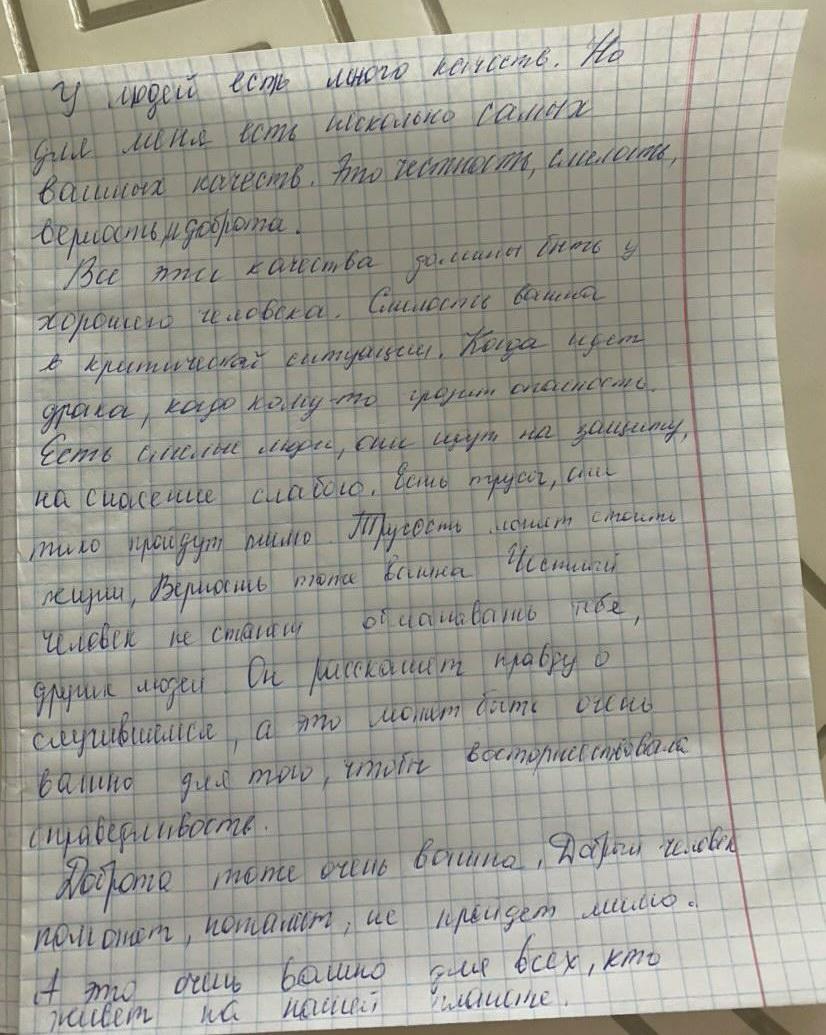 У людей есть много качеств. Но
для меня есть несколько самых
важных качеств. Это честность, смелость,
верность и доброта.
Все эти качества должны быть у
хорошего человека. Смелость важна
в критической ситуации. Когда идет
драка, когда кому-то грозит опасность.
Есть смелые люди, они идут на защиту,
на спасение слабого. Есть трусы, они
тихо пройдут мимо. Трусость может стоить
жизни, Верность тоже важна Честный
человек не станет обманывать тебя,
других людей Он расскажет правду о
случившемся, а это может быть очень
важно для того, чтобы восторжествовала
справедливость.
Доброта тоже очень важна, Добрый человек
поможет, не пройдет мимо.
А это очень важно для всех, кто
живет на нашей планете.